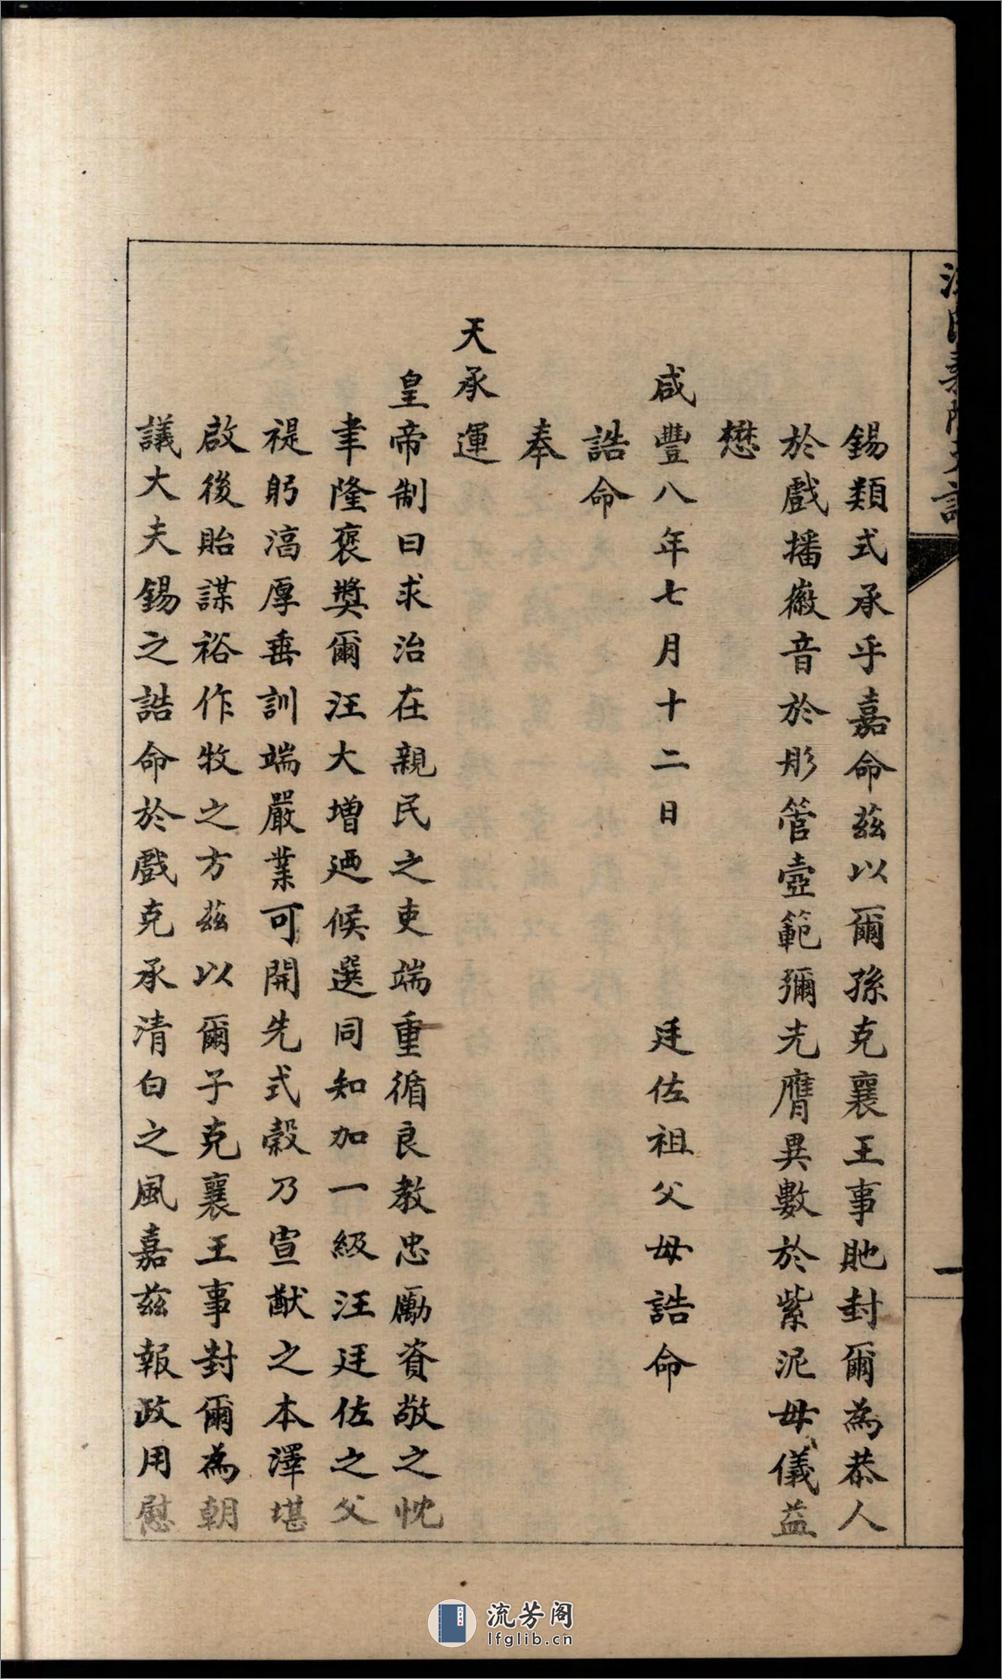 錫類式承乎嘉命茲以爾孫克襄王事貤封爾為恭人
於戲播徽音於彤管壼範彌光膺異數於紫泥母儀益
懋
咸豐八年七月十二日　廷佐祖父母誥命
誥命
奉
天承運
皇帝制曰求治在親民之吏端重循良教忠勵資敬之忱
聿隆褒獎爾汪大增廼候選同知加一級汪廷佐之父
禔躬淳厚垂訓端嚴業可開先式榖乃宣猷之本澤堪
啟後貽謀裕作牧之方茲以爾子克襄王事封爾為朝
議大夫錫之誥命於戲克承清白之風嘉茲報政用慰
一
流芳阁
lfglib.cn